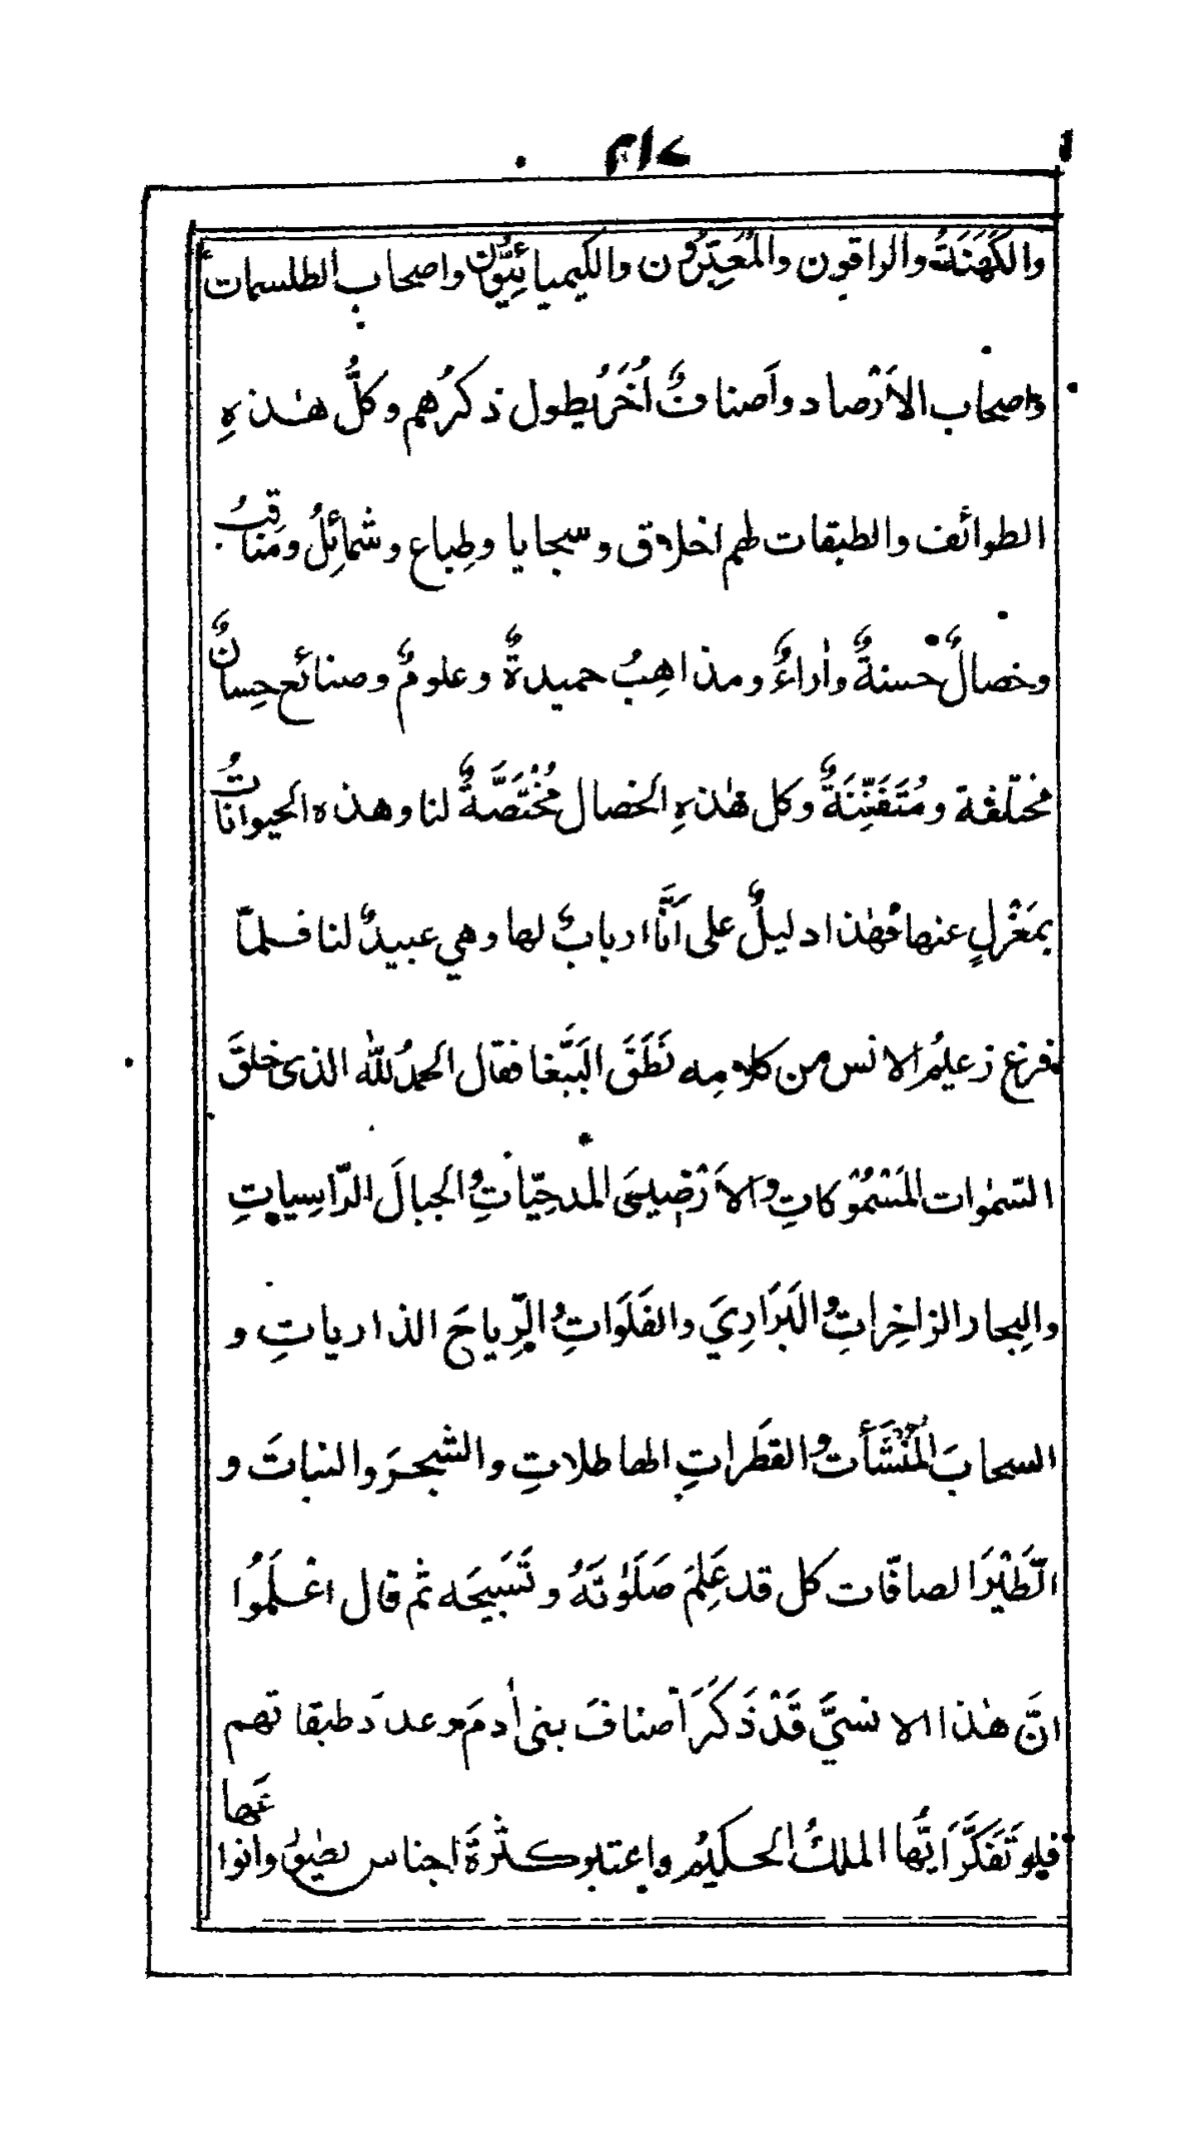 ٢١٧
والكَهَنَةُ والراقون والمُعَبِّرُون والكيميائِيُّون واصحاب الطلسمات
واصحاب الاَرْصاد واَصنافٌ اُخَرُ يطول ذكرُهم وكلُّ هٰذهِ
الطوائف والطبقات لهم اخلاق وسجايا وطِباع وشمائِلُ ومناقبُ
وخصالٌ حْسنةٌ واٰراءٌ ومذاهِبُ حميدةٌ وعلومٌ وصنائع حِسانٌ
مختلفة ومُتَفَنِّنَةٌ وكل هٰذهِ الخصال مُخْتَصَّةٌ لنا وهذه الحيواناتُ
بمَعْزلٍ عنها فهٰذا دليلٌ على اَنَّا اربابٌ لها وهي عبيدٌ لنا فلمّا
فرغ زعيمُ الانس من كلامِه نَطَقَ البَبَّغا فقال الحمدُ للّٰه الذى خلقَ
السّمٰوات المَسْمُوْكاتِ والاَرْضِينَ المدحيّاتِ والجبالَ الرّاسِياتِ
والبِحار الزاخِراتِ والبَرَارِيَ والفَلَوَاتِ والرِّياحَ الذارياتِ و
السحابَ المُنْشَأَت والقطَراتِ الهاطلاتِ والشجرَ والنباتَ و
الطَّيْرَ الصافّات كل قد عَلِمَ صَلَوٰتَهُ وتَسبيحَه ثم قال اعْلَمُوا
انَّ هٰذا الانسيَّ قَدْ ذَكَرَ اَصنافَ بنى اٰدمَ وعددَ طبقاتهم
فلو تَفَكَّرَ اَيُّها الملكُ الحكيمُ واعتبر كثرةَ اجناس الطيور وانواعَها